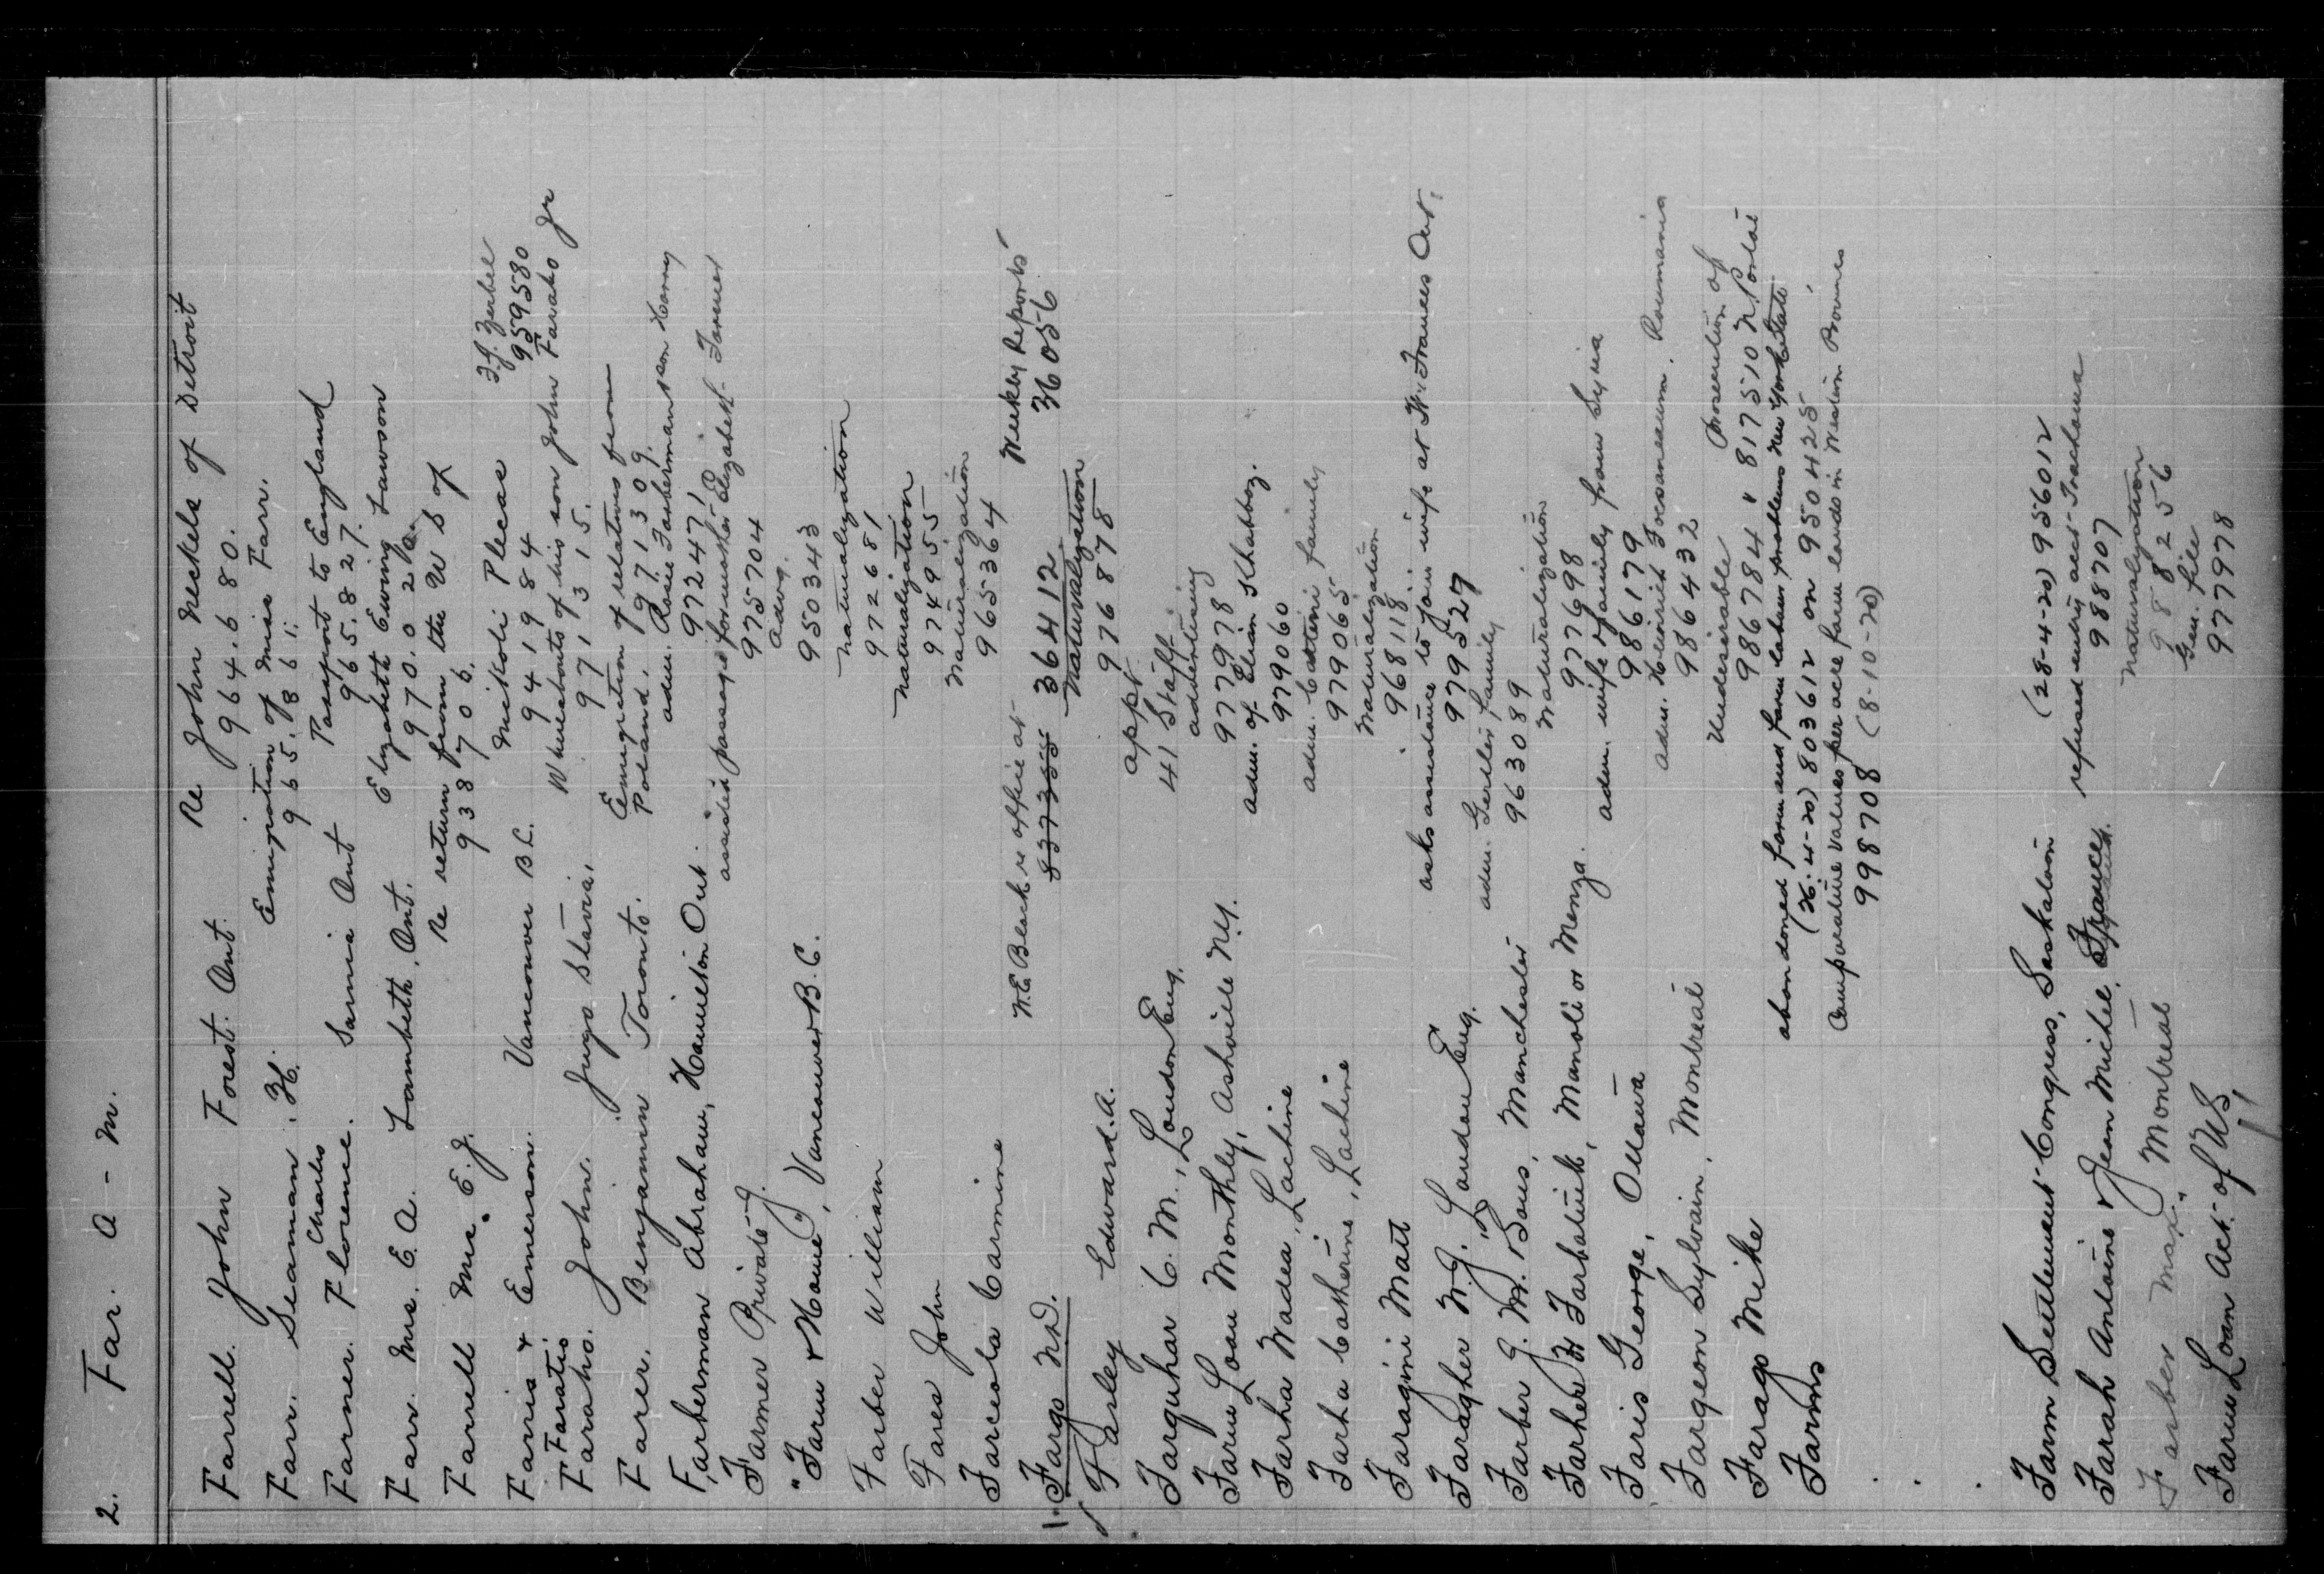 2. Far. A - M.
Farrell. John Forest. Ont. Re John Meckels of Detroit
964.680.
Farr. Seaman. H. Emigration of Miss Farr.
965.861.
Farmer. Charles Florence. Sarnia Ont Passport to England
965.827.
Farr. Mrs. E. A. Lambeth. Ont. Elizabeth Ewing Lawson
970.020.
Farrell Mrs. E. J. Re return from the U S of
938706.
Farris & Emerson. Vancouver B C. Mikoli Plecas
941984
959580
Faratis
Faraho. John. Jugo Slavia. Whereabouts of his son John Faraho Jr
971315.
Farer. Benjamin Toronto. Emigration of relatives from
Poland. 971309.
Farberman Abraham, Hamilton Ont. adm. Rosie Farberman son Harry
972471
Farmer Private J. assisted passage for mother Elizabeth Farmer
975704
"Farm & Home", Vancouver B.C. advg.
950343
Farber William naturalization
972681
Fares John naturalization
974955
Farceola Carmine Naturalization
965364
Fargo N.D. W.E. Black re office at 837355 36412 Weekly Reports
36056
Farley Edward. A. Naturalization
976878
Farquhar C. M., London Eng. appt
41 Staff
Farm Loan Monthly, Ashville N.Y. advertising
977978
Farha Wadea, Lachine adm. of Elian Khabbaz.
979060
Farha Catherine, Lachine adm. family
979065
Faragini Matt Naturalization
968118
Faragher W. J., London Eng. asks assistance to join wife at Ft. Frances Ont.
979527
Farber J. M. Sons, Manchester adm. Gerller family
963089
Farhat Manoli or Menza. Naturalization
977698
Faris George, Ottawa adm. wife & family from Syria
986179
Fargeon Sylvain, Montreal adm. Roumania
986432
Farago Mike Undesirable Prosecution of
986784 817510
Farms abandoned farm and farm labour problems New York State
(26-4-20) 803612 on 950425
Comparative Values per acre farm lands in Western Provinces
998708 (8-10-20)
Farm Settlement Congress, Saskatoon (28-4-20) 956012
Farah Antoine & Jean Michel, France refused entry acct Trachoma
988707
Farber Max. Montreal Naturalization
988256
Farm Loan Act. of U.S. Gen. file
977978